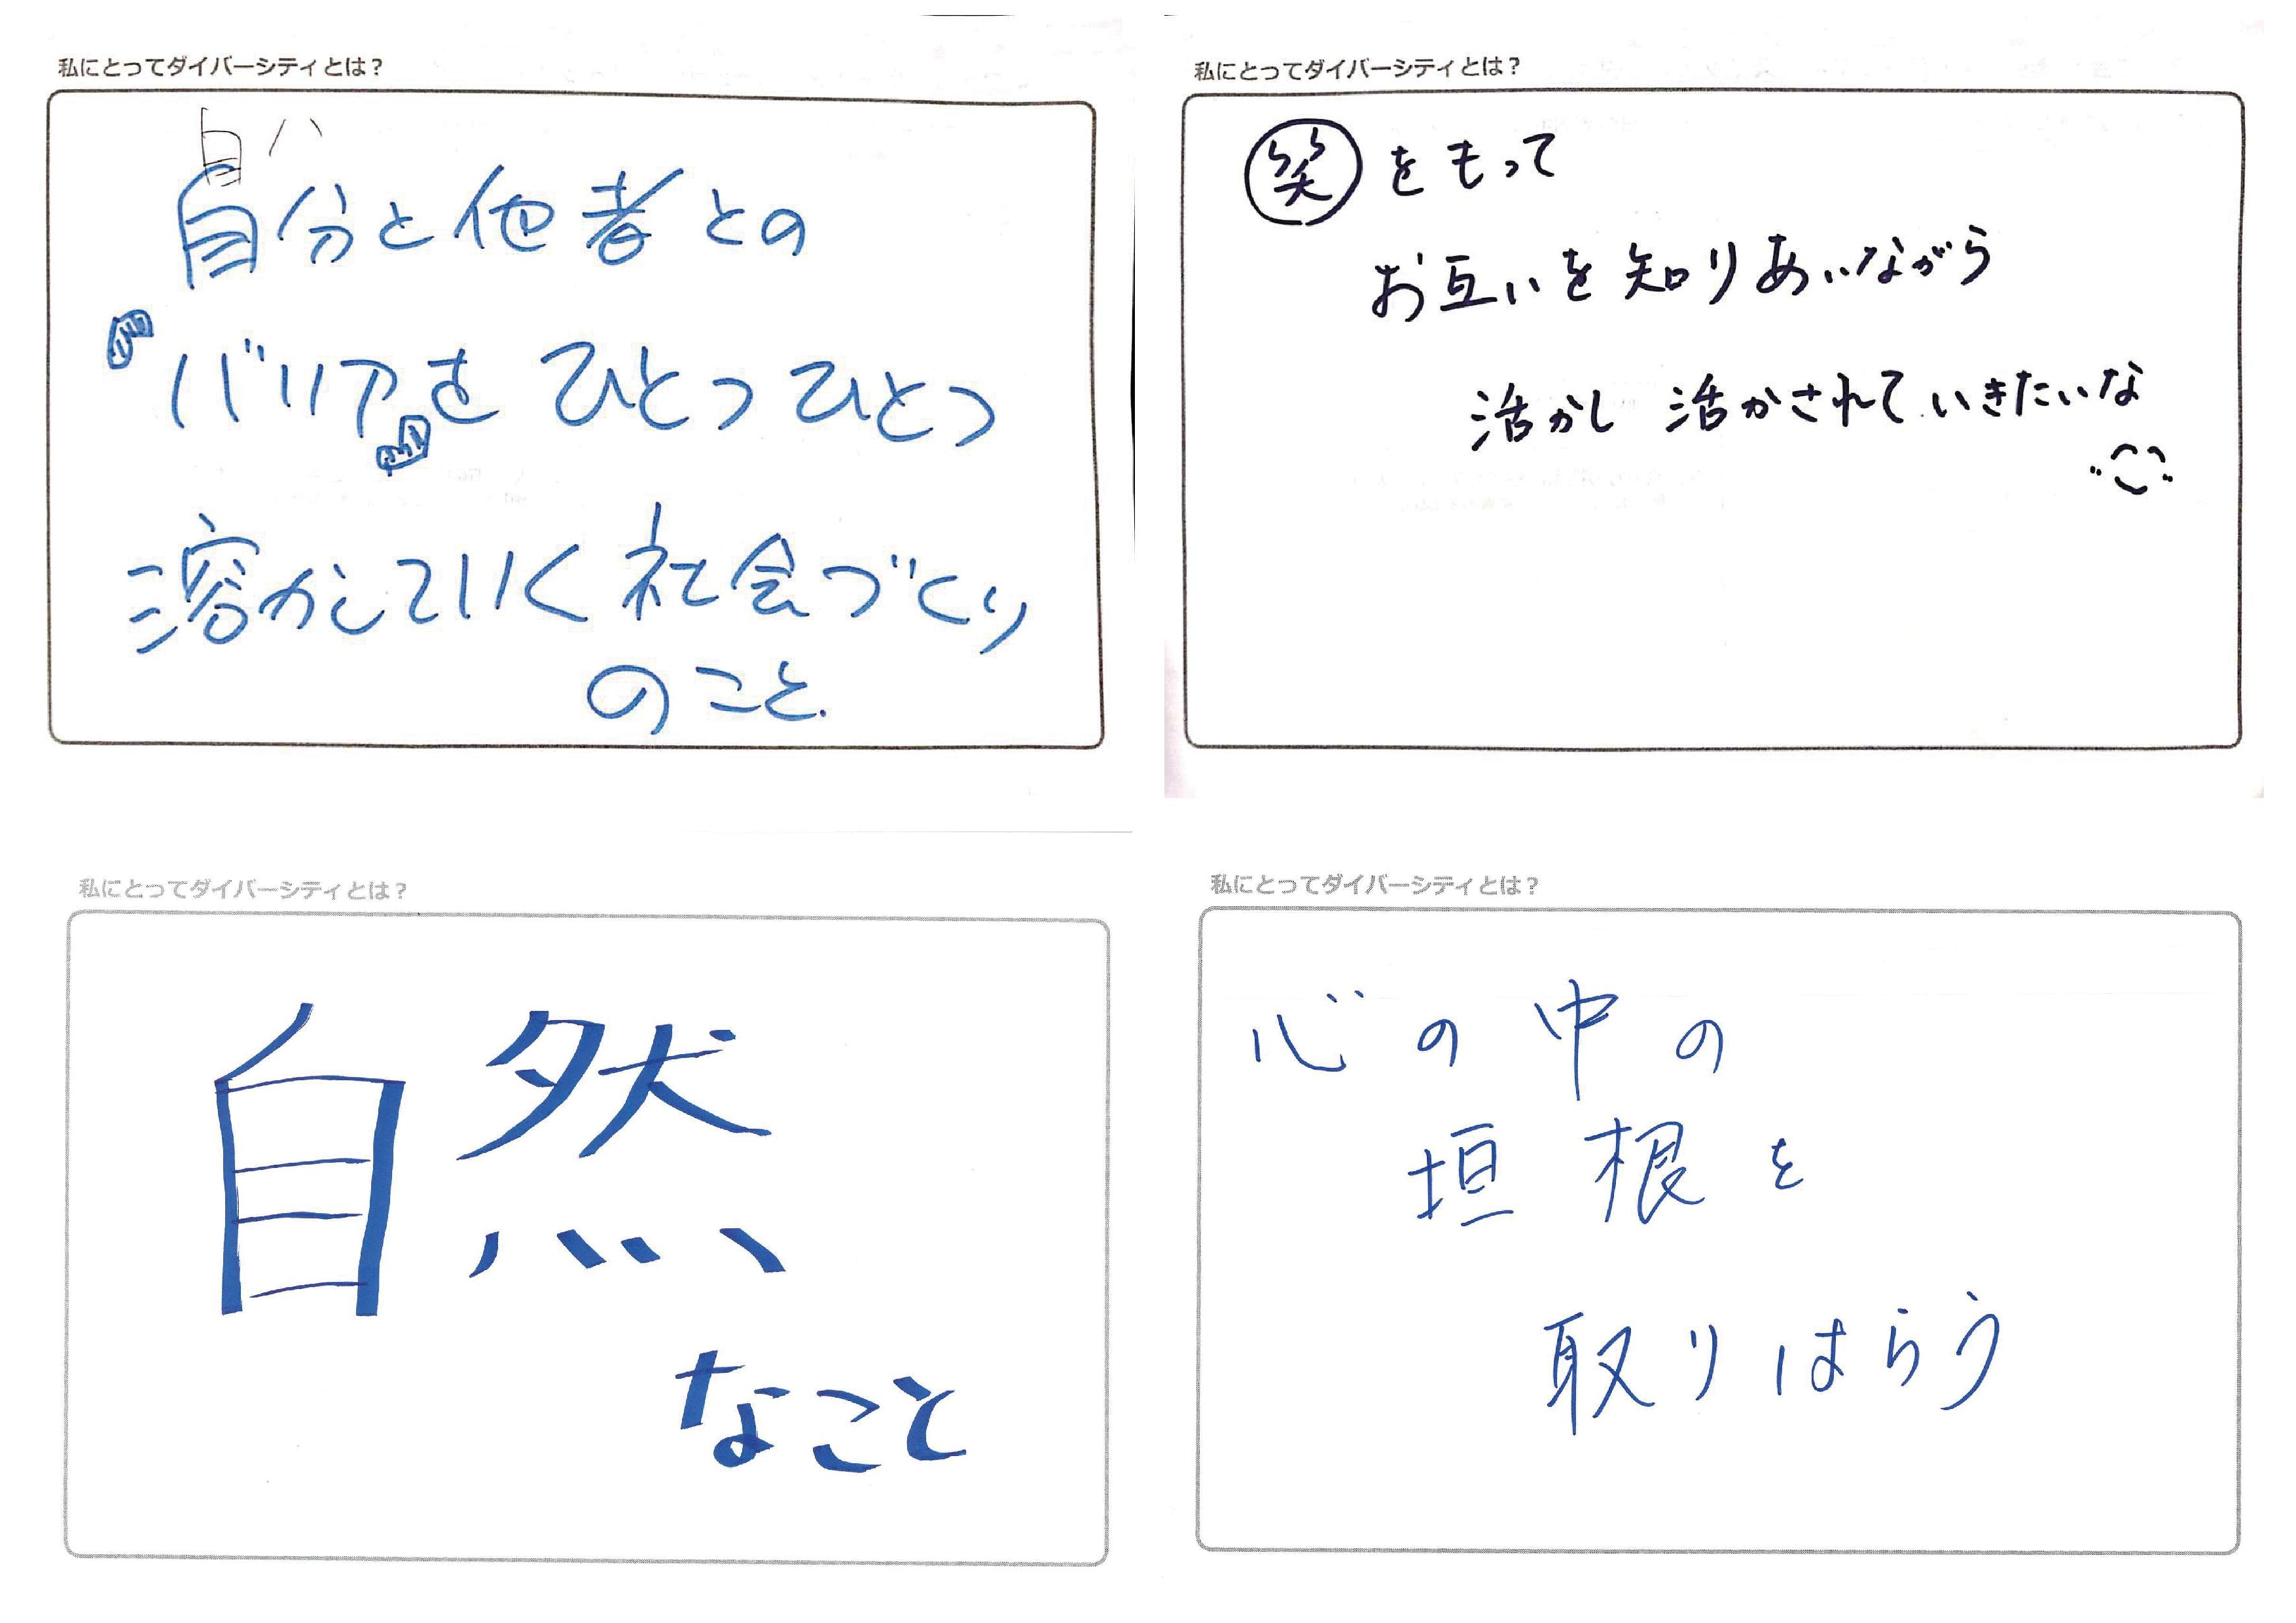 私にとってダイバーシティとは？
自分と他者との
『バリア』を ひとつひとつ
溶かしていく社会づくり
のこと.
私にとってダイバーシティとは？
笑をもって
お互いを知りあいながら
活かし 活かされていきたいな
私にとってダイバーシティとは？
自然
なこと
私にとってダイバーシティとは？
心の中の
垣根を
取りはらう